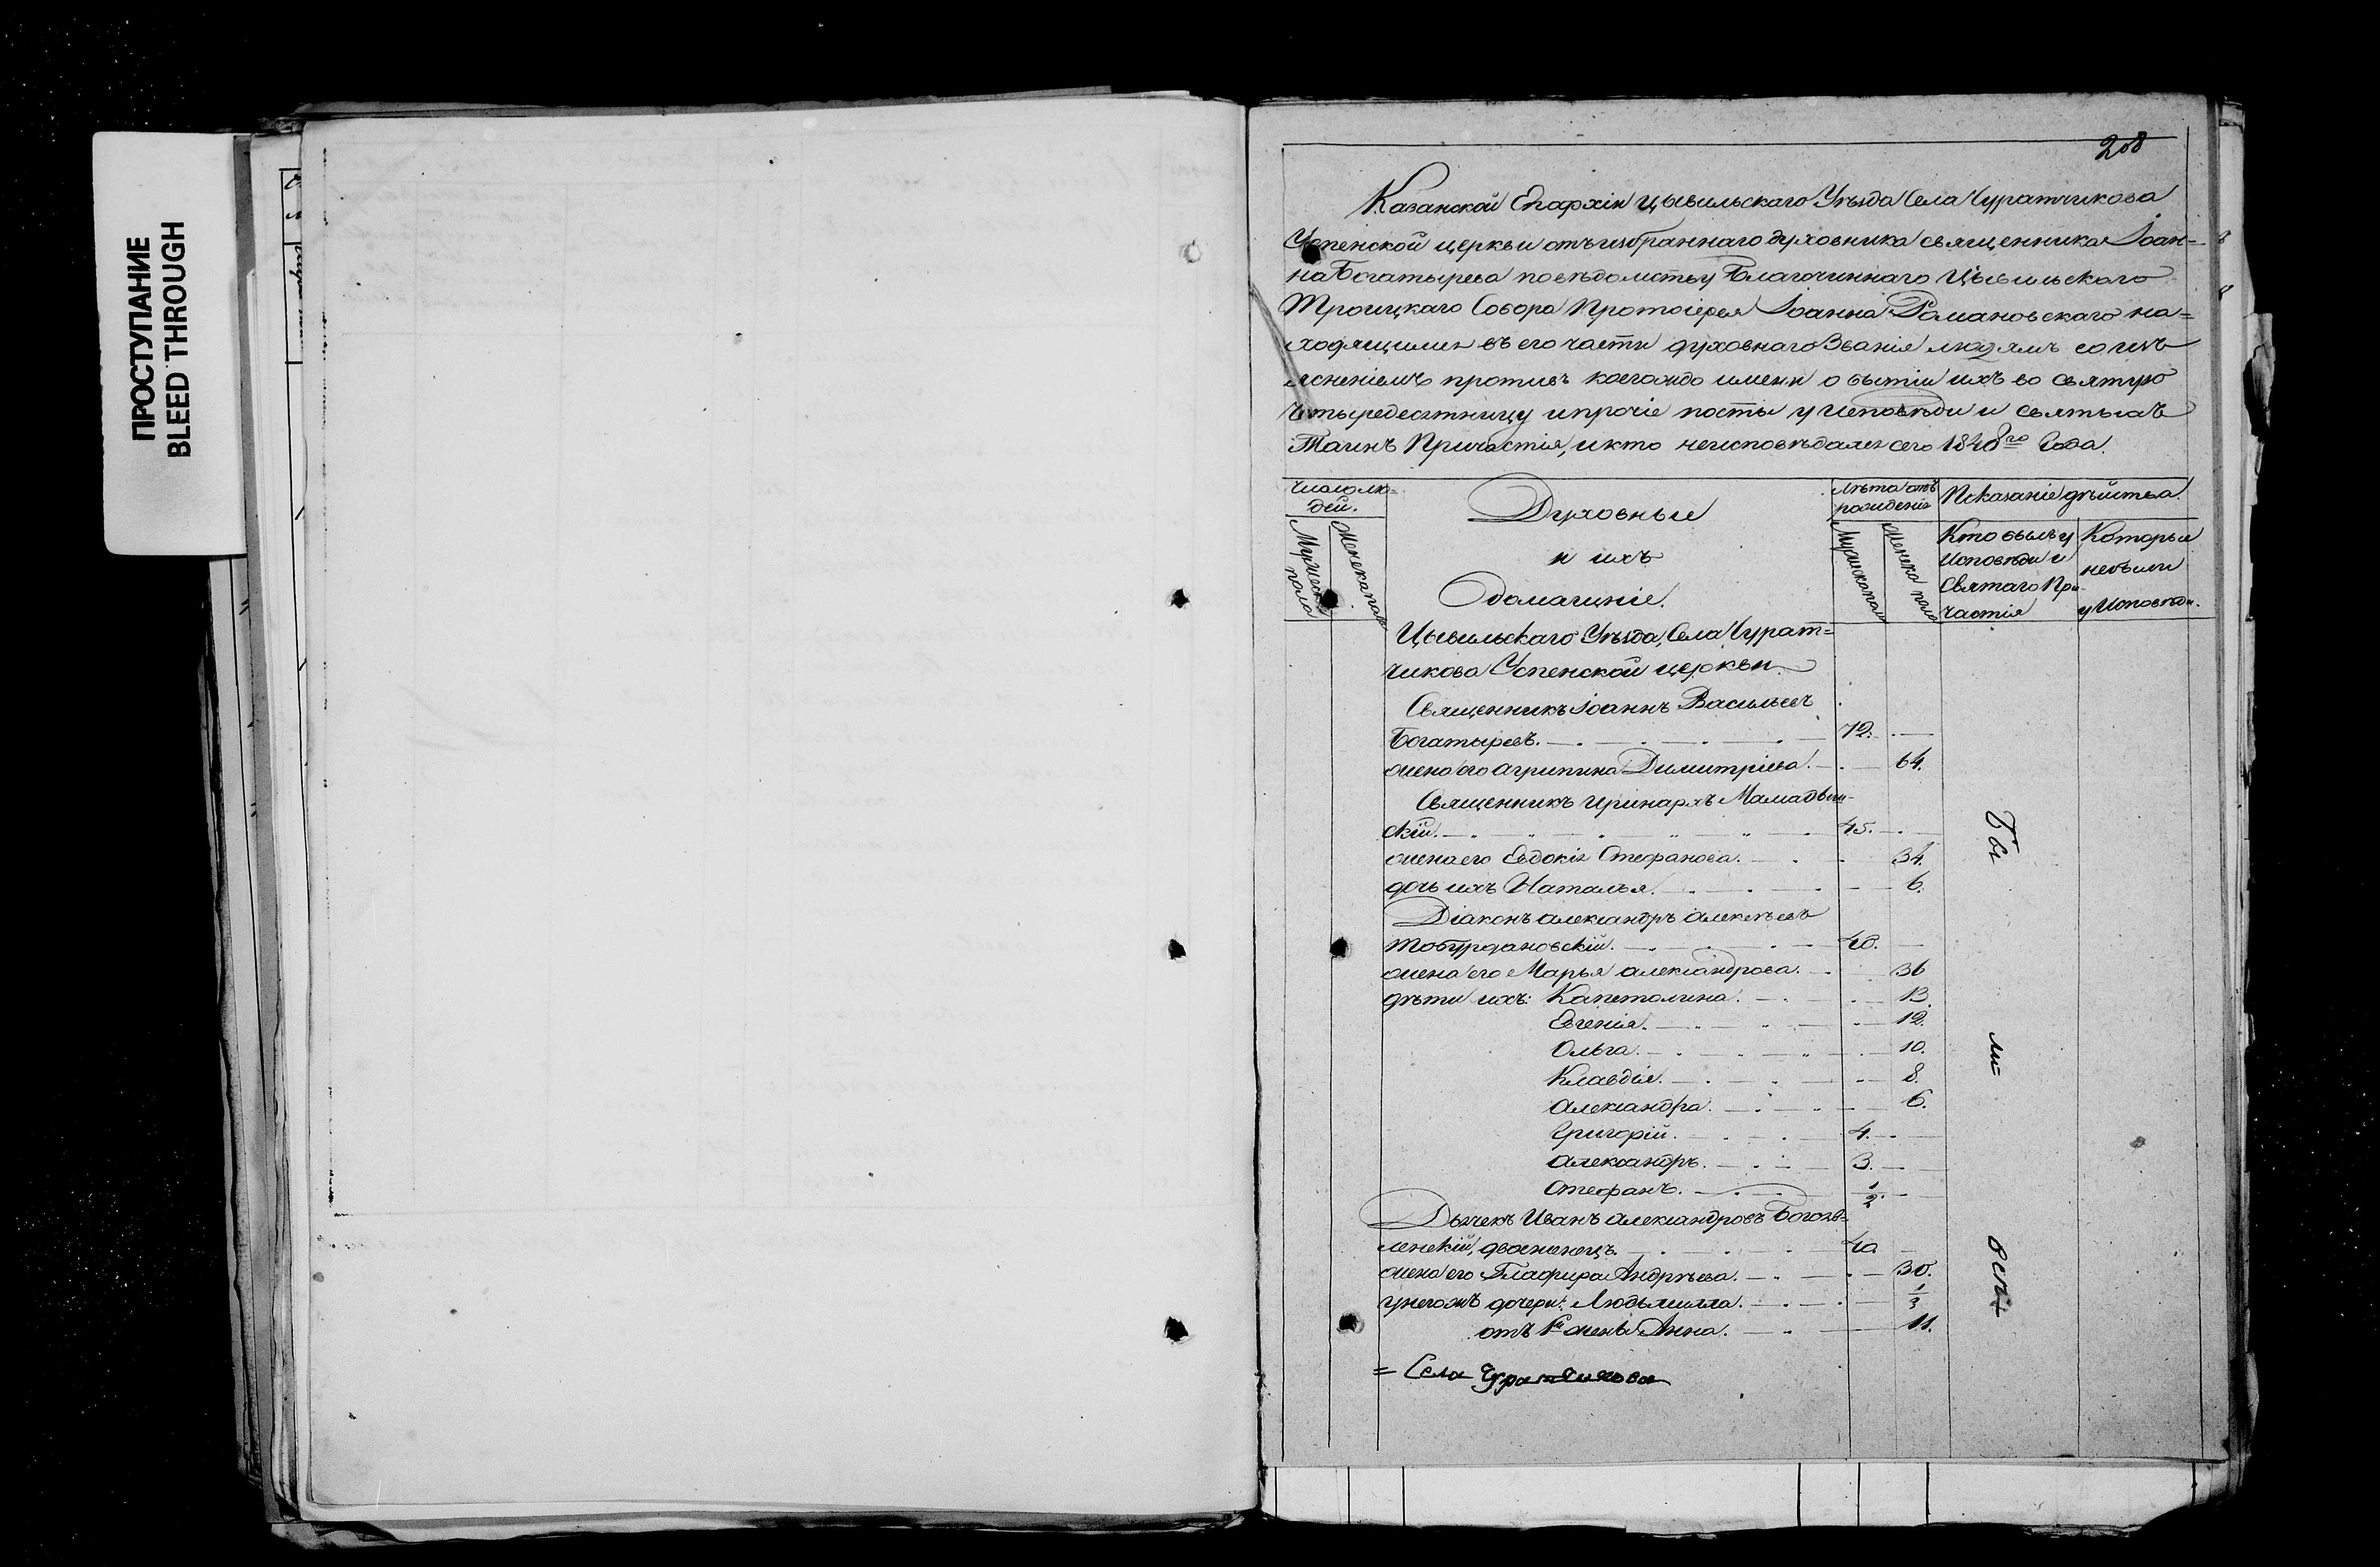 ПРОСТУПАНИЕ
BLEED THROUGH
208
Казанской Епархіи Цывильскаго Уѣзда Села Чуратчикова
Успенской церкви отъ избраннаго духовника священника Іоан=
на Богатырева по вѣдомству Благочиннаго Цывильскаго
Троицкаго Собора Протоіерея Іоанна Романовскаго на=
ходящимся въ его части духовнаго Званія людямъ со изъ
ясненіемъ противъ коегождо имени о бытіи ихъ во святую
Четыредесятницу и прочіе посты у Исповѣди и святыхъ
Таинъ Причастія, и кто неисповѣдался сего 1848го Года.
Число лю=
дей.
Мужеска
пола
Женска пола
Духовные
и ихъ
домашніе.
Лѣта отъ
рожденія
Мужска пола
Женска пола
Показаніе дѣйства.
Кто былъ у
Исповѣди и
Святаго При
частія
Которые
небыли
у Исповѣди.
Цывильскаго Уѣзда, Села Чурат=
чикова Успенской церкви.
Священникъ Іоаннъ Васильевъ
Богатыревъ. 72.
жена его Агрипина Димитріева. 64.
Священникъ Иринархъ Мамадыш-
скій. 45.
жена его Евдокія Стефанова. 34.
дочь ихъ Наталья. 6.
Діаконъ Александръ Алексѣевъ
Тобурдановскій. 40.
жена его Марья Александрова. 36
дѣти ихъ: Капетолина. 13.
Евгенія. 12.
Ольга. 10.
Клавдія. 8.
Александра. 6.
Григорій. 4.
Александръ. 3.
Стефанъ. 1/2.
Дьячекъ Иванъ Александровъ Богояв=
ленскій, двоженецъ. 40
жена его Глафира Андреева. 30.
у негожъ дочери: Людьмилла. 1/3
отъ 1й жены Анна. 11.
= Села Чуратчикова
Бы
ли=
всѣ